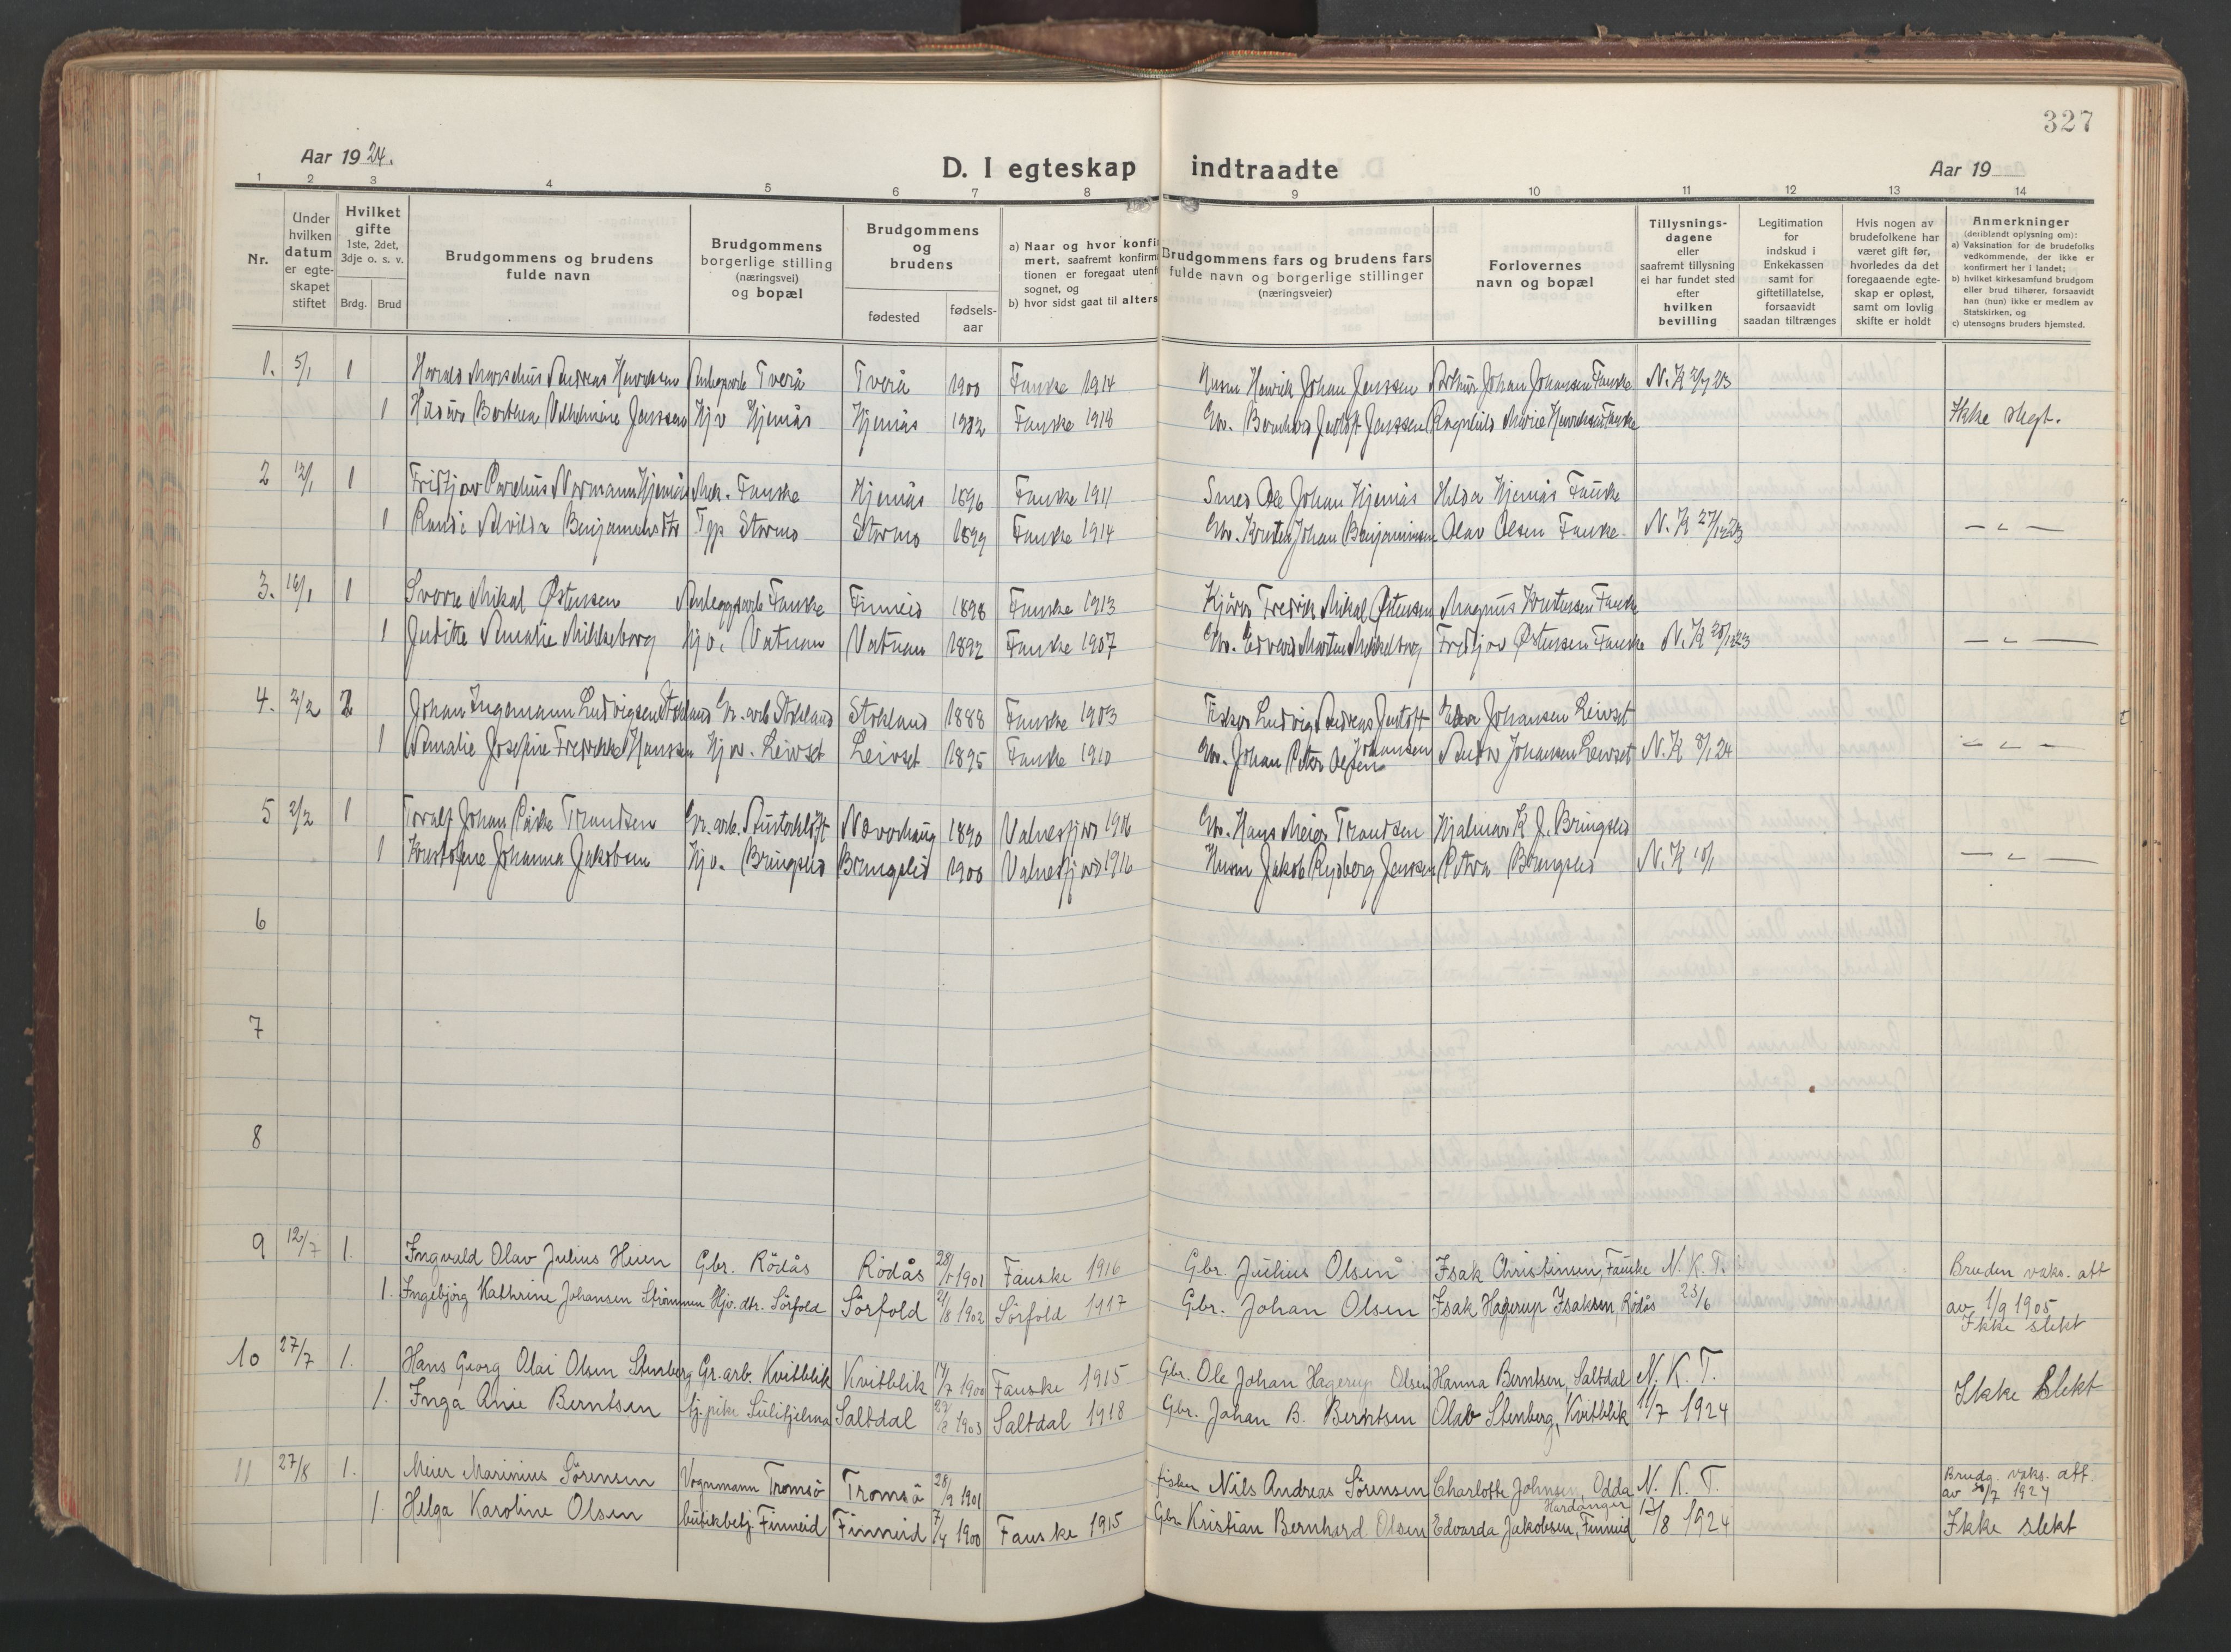 327
Aar 1924.
D. I egteskap indtraadte
Aar 19
1 2 3 4 5 6 7 8 9 10 11 12 13 14
Nr.
Under hvilken datum er egteskapet stiftet
Hvilket gifte 1ste, 2det, 3dje o. s. v.
Brdg. Brud
Brudgommens og brudens fulde navn
Brudgommens borgerlige stilling (næringsvei) og bopæl
Brudgommens og brudens
fødested
fødsels-aar
a) Naar og hvor konfi
mert, saafremt konfirm
tionen er foregaat utenf
sognet, og
b) hvor sidst gaat til alters
Brudgommens fars og brudens fars
fulde navn og borgerlige stillinger
(næringsveier)
Forlovernes
navn og bopæl
Tillysnings-
dagene
eller
saafremt tillysning
ei har fundet sted
efter
hvilken
bevilling
Legitimation
for
indskud i
Enkekassen
samt for
giftetillatelse,
forsaavidt
saadan tiltrænges
Hvis nogen av
brudefolkene har
været gift før,
hvorledes da det
foregaaende egte-
skap er opløst,
samt om lovlig
skifte er holdt
Anmerkninger
(deriblandt oplysning om):
a) Vaksination for de brudefolks
vedkommende, der ikke er
konfirmert her i landet;
b) hvilket kirkesamfund brudgom
eller brud tilhører, forsaavidt
han (hun) ikke er medlem av
Statskirken, og
c) utensogns bruders hjemsted.
1. 5/1 1 Tverå Tverå 1900 Fauske 1914 Henrik Johan Jenssen Johan Johansen Fauske N. K
1 Berthea Vilhelmine Jenssen Hjv Hjemås Hjemås Fauske 1918 Gbr. Jenssen Ragnhild Marie Henriksen Fauske Ikke slegt.
2 1 Normann Hjemås Mek. Fauske Hjemås 1896 Fauske 1911 Smed Ole Johan Hjemås Hilda Hjemås Fauske
1 Alvilda Stormo Stormo 1899 Fauske 1914 Gbr. Johan Benjaminsen Olav Olsen Fauske N. K 27/12 23 — " —
3. 16/1 1 Sverre Mikal Østensen Anleggsarb Fauske Finneid 1898 Fauske 1913 Fredrik Mikal Østensen Magnus Fauske
1 Juditte Amalie Mikkeborg Hjv. Vatnan Vatnan 1892 Fauske 1907 Gbr. Edvard Martin Mikkelborg Fridtjov Østensen Fauske N. K — " —
4. 2/2 2 Johan Ingemann Ludvigsen Stokland Gr. arb Stokland Stokland 1888 Fauske 1903 Fisker Ludvig Andreas Johansen Leivset
1 Amalie Josefine Fredrikke Hanssen Hjv. Leivset Leivset 1895 Fauske 1910 Gbr. Johan Peter Johansen Johansen Leivset N. K 8/1 24 — " —
5 2/2 1 Toralf Johan Trondsen Gr. arb. 1890 Valnesfjord Gbr. Hans Meier Trondsen Hjalmar K J. Bringslid
1 Kristofine Johanna Jakobsen Hjv. Bringslid Bringslid 1900 Valnesfjord 1916 Husm Jakob Rydberg Jenssen Petra Bringslid N. K 10/1 — " —
6
7
8
9 12/7 1. Ingvald Olav Julius Heien Gbr. Rödås Rödås 1901 Fauske 1916 Gbr. Julius Olsen Isak Christinsen, Fauske N. K. T. Bruden vaks. att
1. Ingebjörg Kathrine Johansen Strömmen Hjv. dtr. Sörfold Sörfold 21/8 1902 Sörfold 1917 Gbr. Johan Olsen Isak Hagerup Isaksen, Rödås 23/6 av 1/9 1905
Ikke slekt
10 27/7 1. Hans Georg Olai Olsen Stenberg Gr. arb. Kvitblik Kvitblik 17/7 1900 Fauske 1915 Gbr. Ole Johan Hagerup Olsen Hanna Berntsen, Saltdal N. K. T. Ikke slekt
1. Inga Anie Berntsen tj. pike Sulitjelma Saltdal 1903 Saltdal 1918 Gbr. Johan B. Berntsen Olav Stenberg, Kvitblik 11/7 1924
11 27/8 1. Meier Marinius Sörensen Vognmann Tromsö Tromsö 28/9 1901 fisker Nils Andreas Sörensen Charlotte Johnsen, Odda N. K. T. Brudg. vaks. att.
Hardanger av 30/7 1924
1. Helga Karoline Olsen butikbetj. Finneid Finneid 7/4 1900 Fauske 1915 Gbr Kristian Bernhard Olsen Edvarda Jakobsen, Finneid 13/8 1924 Ikke slekt